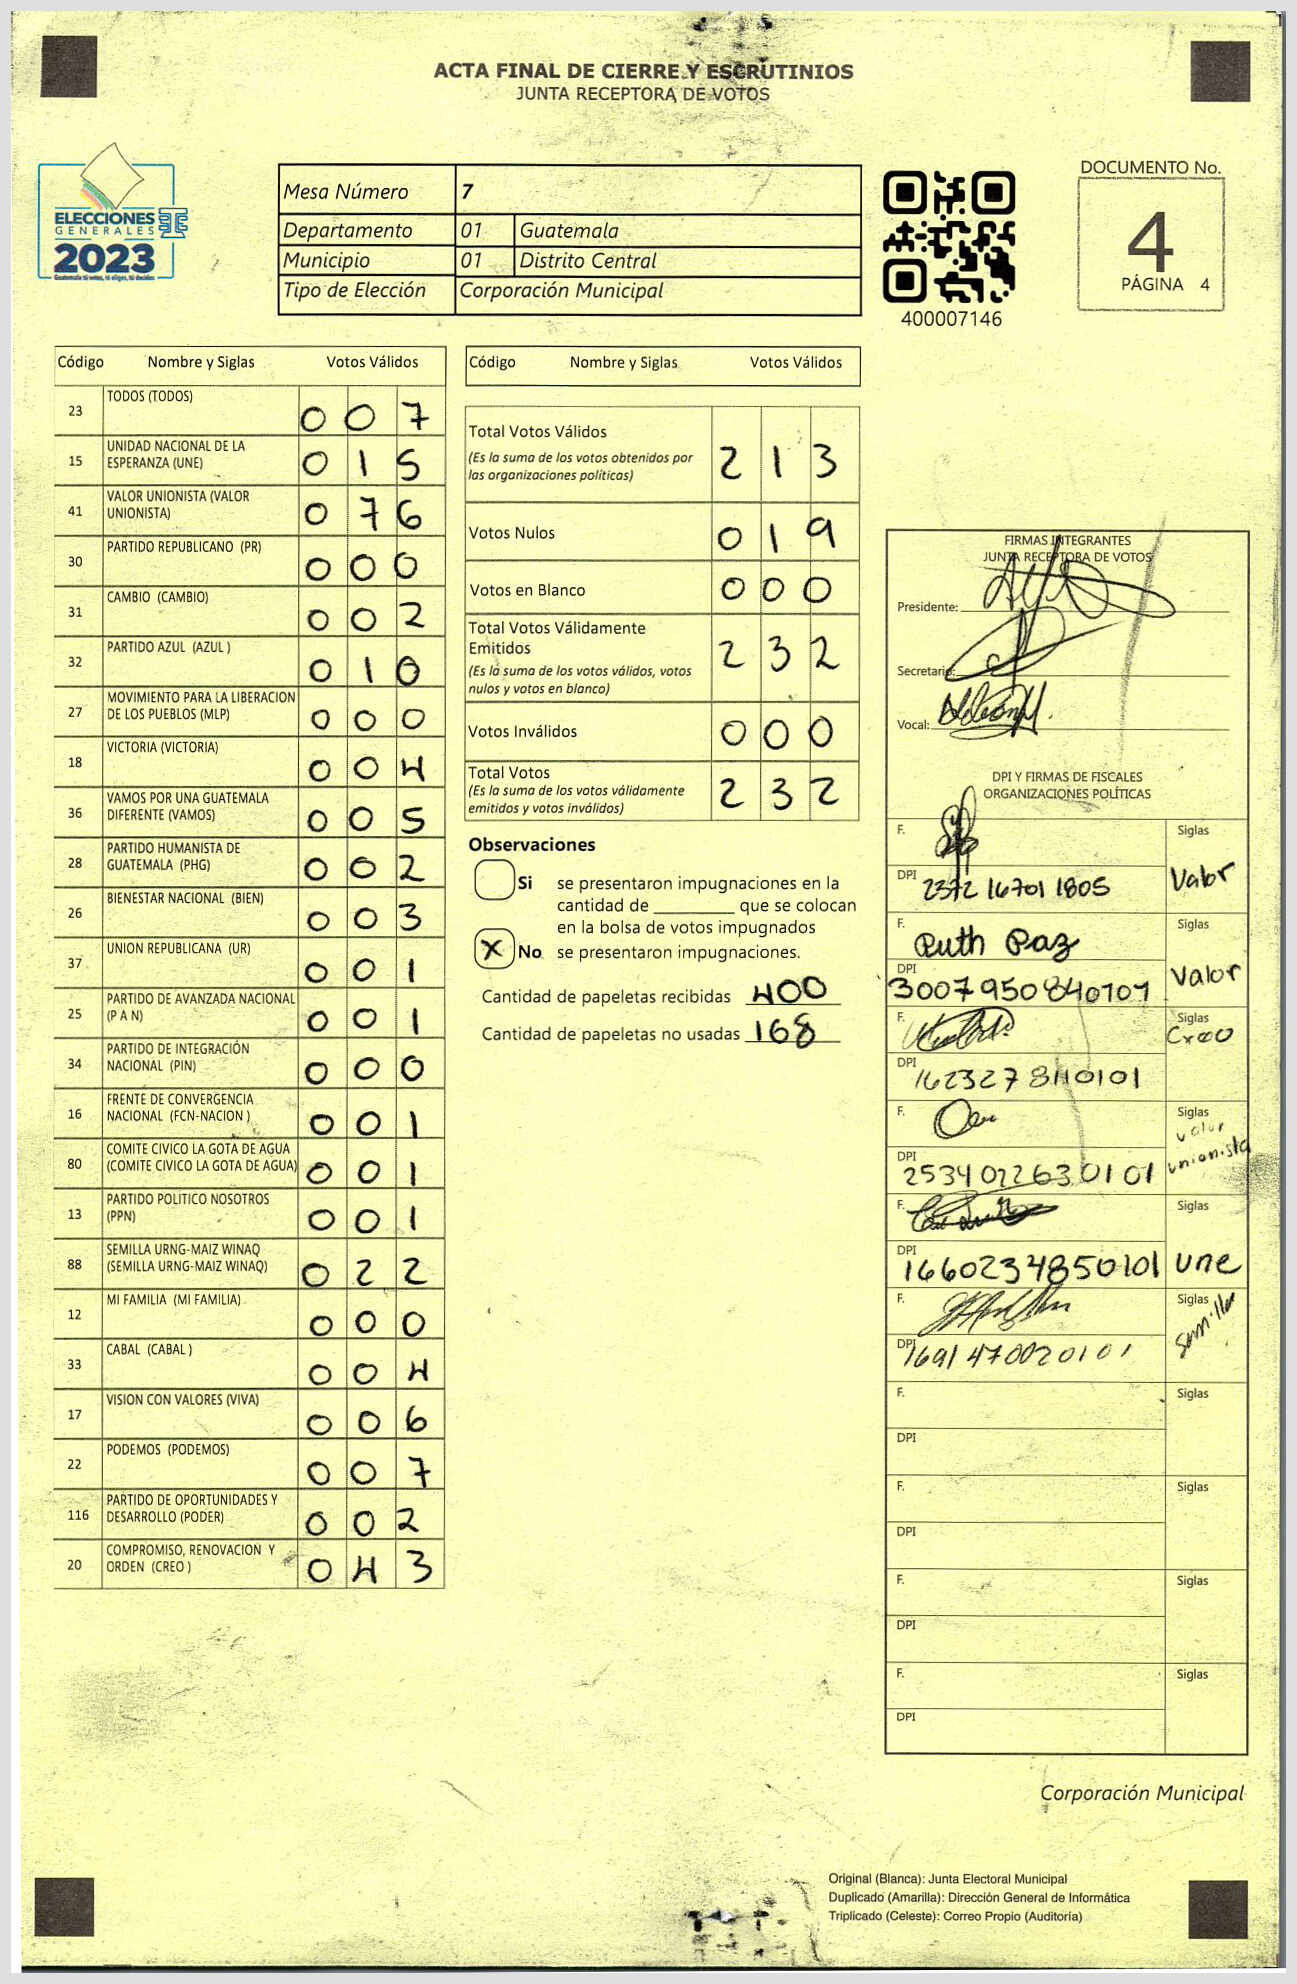 ACTA FINAL DE CIERRE Y ESCRUTINIOS
JUNTA RECEPTORA DE VOTOS
ELECCIONES
GENERALES
2023
Guatemala tú votas, tú eliges, tú decides
Mesa Número 7
Departamento 01 Guatemala
Municipio 01 Distrito Central
Tipo de Elección Corporación Municipal
400007146
DOCUMENTO No.
4
PÁGINA 4
Código Nombre y Siglas Votos Válidos
23 TODOS (TODOS) 0 0 7
15 UNIDAD NACIONAL DE LA
ESPERANZA (UNE) 0 1 5
41 VALOR UNIONISTA (VALOR
UNIONISTA) 0 7 6
30 PARTIDO REPUBLICANO (PR) 0 0 0
31 CAMBIO (CAMBIO) 0 0 2
32 PARTIDO AZUL (AZUL ) 0 1 0
27 MOVIMIENTO PARA LA LIBERACION
DE LOS PUEBLOS (MLP) 0 0 0
18 VICTORIA (VICTORIA) 0 0 4
36 VAMOS POR UNA GUATEMALA
DIFERENTE (VAMOS) 0 0 5
28 PARTIDO HUMANISTA DE
GUATEMALA (PHG) 0 0 2
26 BIENESTAR NACIONAL (BIEN) 0 0 3
37 UNION REPUBLICANA (UR) 0 0 1
25 PARTIDO DE AVANZADA NACIONAL
(P A N) 0 0 1
34 PARTIDO DE INTEGRACIÓN
NACIONAL (PIN) 0 0 0
16 FRENTE DE CONVERGENCIA
NACIONAL (FCN-NACION ) 0 0 1
80 COMITE CIVICO LA GOTA DE AGUA
(COMITE CIVICO LA GOTA DE AGUA) 0 0 1
13 PARTIDO POLITICO NOSOTROS
(PPN) 0 0 1
88 SEMILLA URNG-MAIZ WINAQ
(SEMILLA URNG-MAIZ WINAQ) 0 2 2
12 MI FAMILIA (MI FAMILIA) 0 0 0
33 CABAL (CABAL ) 0 0 4
17 VISION CON VALORES (VIVA) 0 0 6
22 PODEMOS (PODEMOS) 0 0 7
116 PARTIDO DE OPORTUNIDADES Y
DESARROLLO (PODER) 0 0 2
20 COMPROMISO, RENOVACION Y
ORDEN (CREO ) 0 4 3
Código Nombre y Siglas Votos Válidos
Total Votos Válidos
(Es la suma de los votos obtenidos por
las organizaciones políticas) 2 1 3
Votos Nulos 0 1 9
Votos en Blanco 0 0 0
Total Votos Válidamente
Emitidos 2 3 2
(Es la suma de los votos válidos, votos
nulos y votos en blanco)
Votos Inválidos 0 0 0
Total Votos
(Es la suma de los votos válidamente
emitidos y votos inválidos) 2 3 2
Observaciones
Si se presentaron impugnaciones en la
cantidad de ________ que se colocan
en la bolsa de votos impugnados
X No se presentaron impugnaciones.
Cantidad de papeletas recibidas 400
Cantidad de papeletas no usadas 168
FIRMAS INTEGRANTES
JUNTA RECEPTORA DE VOTOS
Presidente:
Secretario:
Vocal:
DPI Y FIRMAS DE FISCALES
ORGANIZACIONES POLÍTICAS
F. Siglas
DPI 2372 16701 1805 Valor
F. Ruth Paz Siglas
DPI 3007950840101 Valor
F. Siglas
Creo
DPI 1623278110101
F. Siglas
valor
unionista
DPI 2534022630101
F. Siglas
DPI 1660234850101 une
F. Siglas
Semilla
DPI 1691470020101
F. Siglas
DPI
F. Siglas
DPI
F. Siglas
DPI
F. Siglas
DPI
Corporación Municipal
Original (Blanca): Junta Electoral Municipal
Duplicado (Amarilla): Dirección General de Informática
Triplicado (Celeste): Correo Propio (Auditoría)